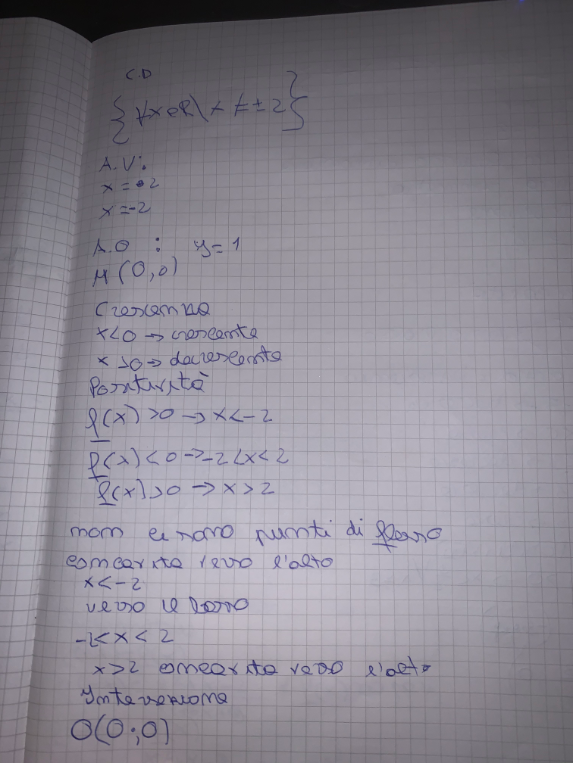 C.D
{∀x∈R\ x ≠ ±2}
A.V:
x = 2
x = -2
A.O : y = 1
M (0,0)
Crescenza
x<0 → crescente
x >0 → decrescente
Positività
f(x) >0 → x<-2
f(x) <0 → -2<x<2
f(x) >0 → x>2
non ci sono punti di flesso
concavità verso l'alto
x<-2
verso il basso
-2<x<2
x>2 concavità verso l'alto
Intersezione
O(0;0)